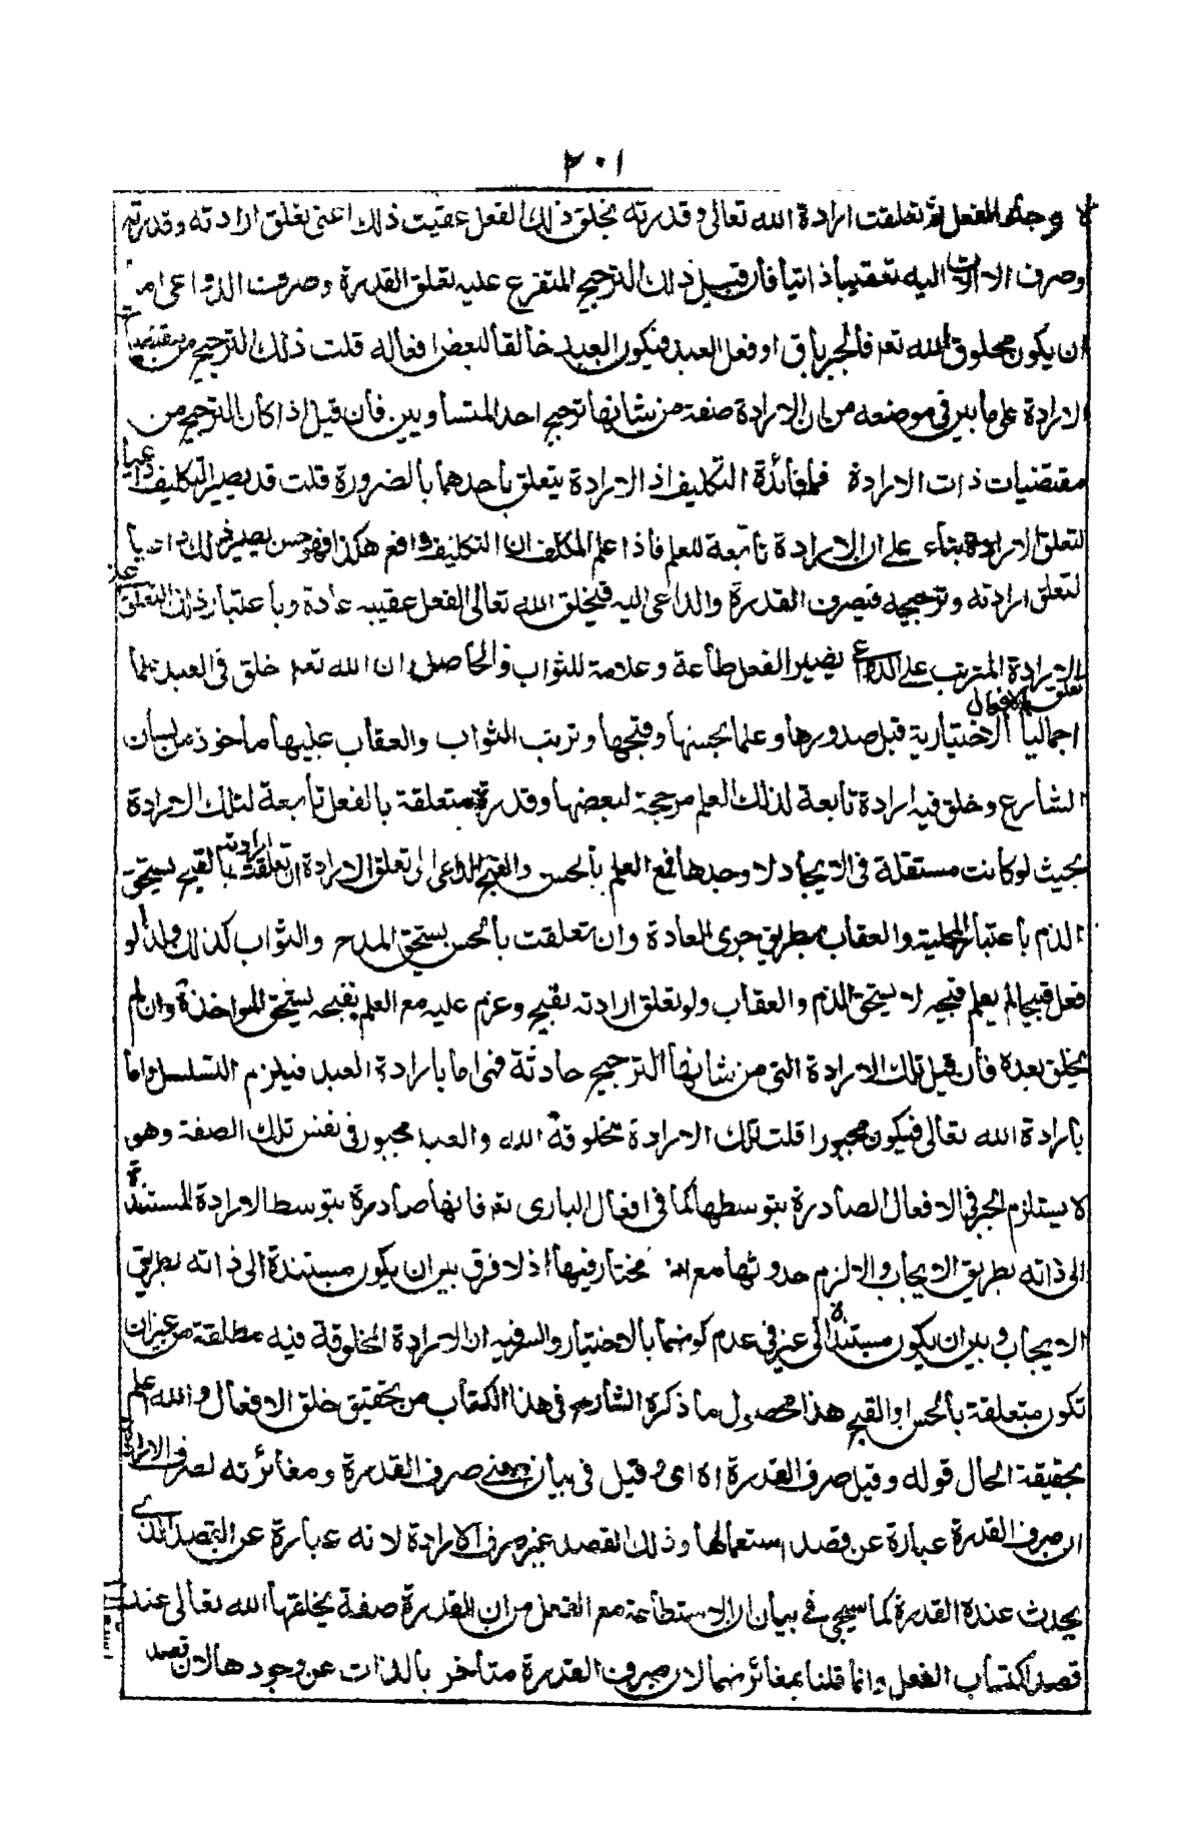 ٢٠١
لا وجد الفعل ثم تعلقت ارادة الله تعالى وقدرته بخلق ذلك الفعل عقيب ذلك اعنى تعلق ارادته وقدرته
وصرف الآلات اليه تعقيبا ذاتيا فان قيل ذلك الترجيح المتفرع عليه تعلق القدرة وصرف الدواعى اما
ان يكون مخلوق الله تعم فالجبر باق او فعل العبد فيكون العبد خالقا لبعض افعاله قلت ذلك الترجيح من مقتضيات
الارادة على ما بين فى موضعه من ان الارادة صفة من شانها ترجيح احد المتساويين فان قيل اذا كان الترجيح من
مقتضيات ذات الارادة فما فائدة التكليف اذ الارادة يتعلق باحدهما بالضرورة قلت قد يصير التكليف داعيا
لتعلق الارادة بناء على ان الارادة تابعة للعلم فاذا علم المكلف ان التكليف واقع هكذا فهو حسن يصير ذلك داعيا
لتعلق ارادته وترجيحه فيصرف القدرة والداعى اليه فيخلق الله تعالى الفعل عقيبه عادة وباعتبار ذلك التعلق
الارادة المترتب على الداعى يصير الفعل طاعة وعلامة للثواب والحاصل ان الله تعم خلق فى العبد علما
تعلق بالافعال
اجماليا الاختيارية قبل صدورها وعلما بحسنها وقبحها وترتب الثواب والعقاب عليها ماخوذ من لسان
الشارع وخلق فيه ارادة تابعة لذلك العلم مرجحة لبعضها وقدرة متعلقة بالفعل تابعة لتلك الارادة
بحيث لو كانت مستقلة فى الايجاد لاوجدها فمع العلم بالحسن والقبح الداعى الى تعلق الارادة ان تعلقت ارادته بالقبيح يستحق
الذم باعتبار المحلية والعقاب بطريق جرى العادة وان تعلقت بالحسن يستحق المدح والثواب كذلك ولذا لو
فعل قبيحا لم يعلم قبحه لا يستحق الذم والعقاب ولو تعلق ارادته بقبيح وعزم عليه مع العلم بقبحه يستحق المواخذة وان لم
يخلق بعده فان قيل تلك الارادة التى من شانها الترجيح حادثة فهى اما بارادة العبد فيلزم التسلسل واما
بارادة الله تعالى فيكون مجبورا قلت تلك الارادة مخلوقة الله والعبد مجبور فى نفس تلك الصفة وهو
لا يستلزم الجبر فى الافعال الصادرة بتوسطها كما فى افعال البارى تعم فانها صادرة بتوسط الارادة المستندة
الى ذاته بطريق الايجاب والالزم حدوثها مع انه مختار فيها اذ لا فرق بين ان يكون مستندة الى ذاته بطريق
الايجاب وبين ان يكون مستندة الى غيره فى عدم كونهما بالاختيار والسر فيه ان الارادة المخلوقة فيه مطلقة من غير ان
تكون متعلقة بالحسن او القبح هذا محصول ما ذكره الشارح فى هذا الكتاب من تحقيق خلق الافعال والله اعلم
بحقيقة الحال قوله وقيل صرف القدرة اه اى قيل فى بيان معنى صرف القدرة ومغائرته لصرف الارادة
ان صرف القدرة عبارة عن قصد استعمالها وذلك القصد غير صرف الارادة لانه عبارة عن القصد الذى
يحدث عنده القدرة كما سيجى فى بيان ان الاستطاعة مع الفعل من ان القدرة صفة يخلقها الله تعالى عند
قصد اكتساب الفعل وانما قلنا بمغائرتهما لان صرف القدرة متأخر بالذات عن وجودها لان قصد